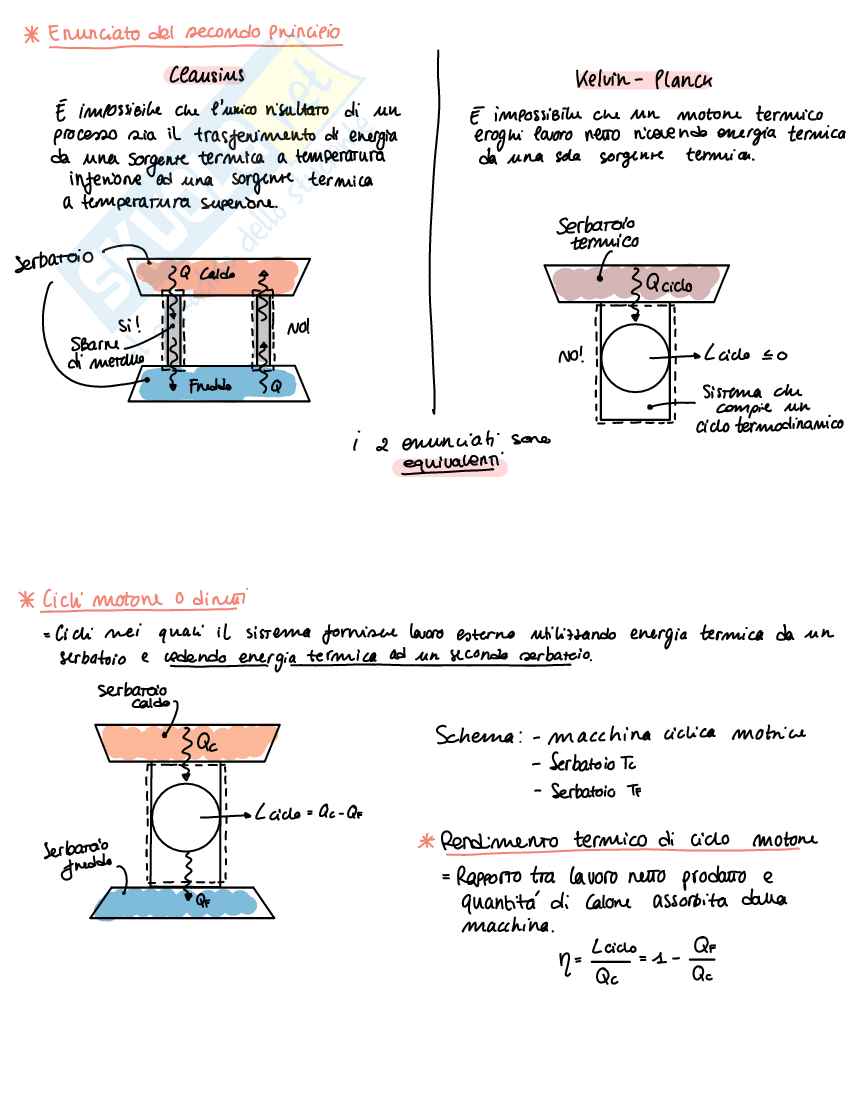 * Enunciato del secondo principio
Clausius
È impossibile che l'unico risultato di un
processo sia il trasferimento di energia
da una sorgente termica a temperatura
inferiore ad una sorgente termica
a temperatura superiore.
Serbatoio
Q Caldo
Si!
NO!
Sbarre
di metallo
Freddo
Q
Kelvin - Planck
È impossibile che un motore termico
eroghi lavoro netto ricevendo energia termica
da una sola sorgente termica.
Serbatoio
termico
Q ciclo
NO!
L ciclo ≤ 0
Sistema che
compie un
ciclo termodinamico
i 2 enunciati sono
equivalenti
* Cicli motore o diretti
= Cicli nei quali il sistema fornisce lavoro esterno utilizzando energia termica da un
serbatoio e cedendo energia termica ad un secondo serbatoio.
Serbatoio
caldo
Qc
L ciclo = Qc - QF
Serbatoio
freddo
QF
Schema: - macchina ciclica motrice
- Serbatoio Tc
- Serbatoio TF
* Rendimento termico di ciclo motore
= Rapporto tra lavoro netto prodotto e
quantità di calore assorbita dalla
macchina.
η = L ciclo / Qc = 1 - QF / Qc